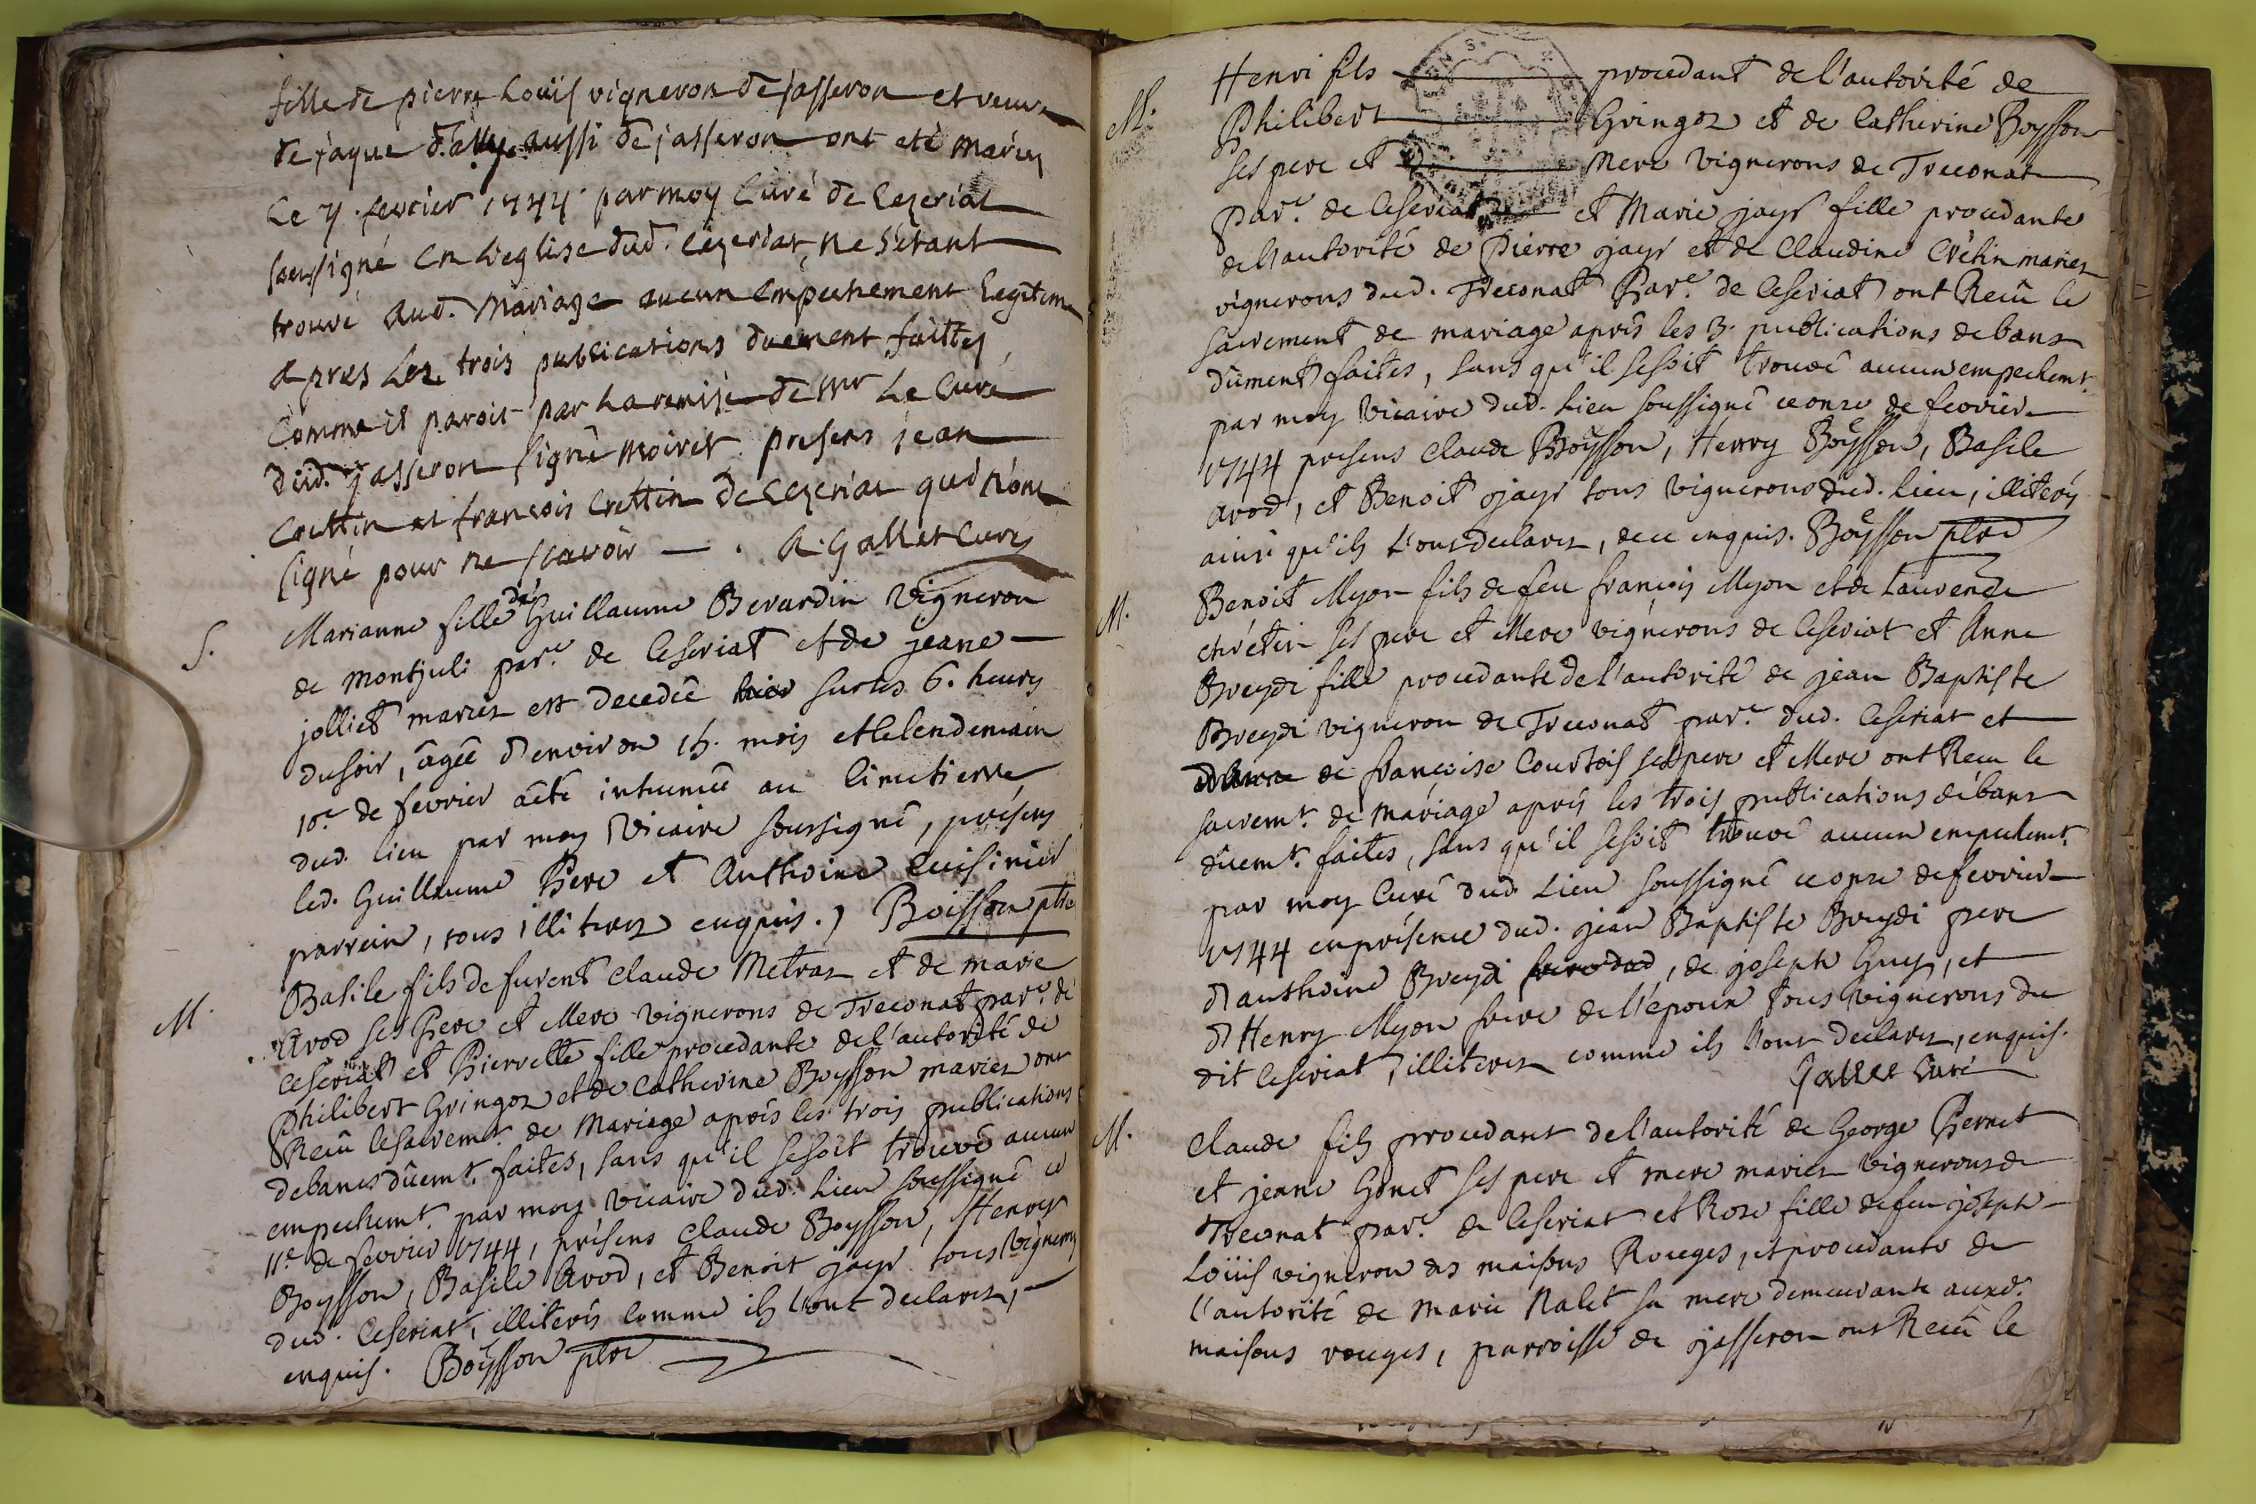 fille de pierre Loüis vigneron de jasseron et veuve
de jaque aussi de jasseron ont eté mariés
Le 7. fevrier 1744 par moy Curé de Cezeriat
soussigné en L'eglise dud. Cezeriat, ne s'etant
trouvé aud. Mariage aucun empechement Legitime
apres Les trois publications duement faittes,
Comme il paroit par La remise de Mr Le Curé
dud. jasseron signé Moiret presens jean
Crettin et françois Crettin de Cezeriat qui n'ont
signé pour ne scavoir — . A. Gallet Curé
S.
Marianne fille de Guillaume Berardin Vigneron
de Montjuli par.e de Ceseriat et de jeane
jolliet mariés est decedée hier sur les 6. heures
du soir, âgée d'environ 15. mois et le lendemain
10.e de fevrier a été inhumée au Cimetierre
dud. lieu par moy Vicaire soussigné, présens
led. Guillaume Pere et Anthoine Cuisinier
parrein, tous illiterez enquis., Boisson ptre
M.
Basile fils de furent Claude Metraz et de Marie
Avod ses Pere et Mere vignerons de Treconat par.e de
Ceseriat et Pierrette fille procedante de l'autorité de
Philibert Gringoz et de Catherine Boysson mariez ont
Reçû le sacrem.t de Mariage aprés les trois publications
de bancs dûem.t faites, sans qu'il se soit trouvé aucun
empechemt. par moy Vicaire dud. Lieu soussigné ce
11.e de fevrier 1744, présens Claude Boysson, Henry
Boysson, Basile Avod, et Benoit jayr tous vignerons
dud. Ceseriat, illiterés comme ils l'ont declarez,
enquis. Boÿsson ptre
M.
Henri fils procedant de l'autorité de
Philibert Gringoz et de Catherine Boysson
ses pere et Mere vignerons de Treconat
Par.e de Ceseriat et Marie jayr fille procedante
de l'autorité de Pierre jayr et de Claudine Crétin mariez
vignerons dud. Treconat Par.e de Ceseriat ont Reçû le
sacrement de mariage aprés les 3. publications de bans
dûment faites, sans qu'il se soit trouvé aucun empechemt.
par moy Vicaire dud. Lieu soussigné ce onze de fevrier
1744 presens Claude Boÿsson, Henry Boÿsson, Basile
avod, et Benoit jayr tous vignerons dud. lieu, illiterés
ainsi qu'ils L'ont declarez, de ce enquis. Boÿsson ptre
M.
Benoit Myon fils de feu françois Myon et de Laurence
chrétin ses pere et Mere vignerons de Ceseriat et Anne
Breydi fille procedante de l'autorité de jean Baptiste
Breydi vigneron de Treconat par.e dud. Ceseriat et
de françoise Courtois ses pere et Mere ont Reçu le
sacremt. de mariage aprés les trois publications de bans
dûemt. faites, sans qu'il se soit trouvé aucun empechemt.
par moy Curé dud. Lieu soussigné ce onze de fevrier
1744 en présence dud. jean Baptiste Breydi pere
d'anthoine Breydi, de joseph Guy, et
d'Henry Myon frere de l'epoux tous vignerons du
dit Ceseriat, illiterez comme ils l'ont declarez, enquis.
Gallet Curé
M.
Claude fils procedant de l'autorité de George Pernet
et jeane Gonet ses pere et mere mariez vignerons de
Treconat par.e de Ceseriat et Rose fille de feu joseph
Loüis vigneron des maisons Rouges, et procedante de
l'autorité de Marie Nalet sa mere demeurante auxd.
maisons rouges, parroisse de jasseron ont Reçû le